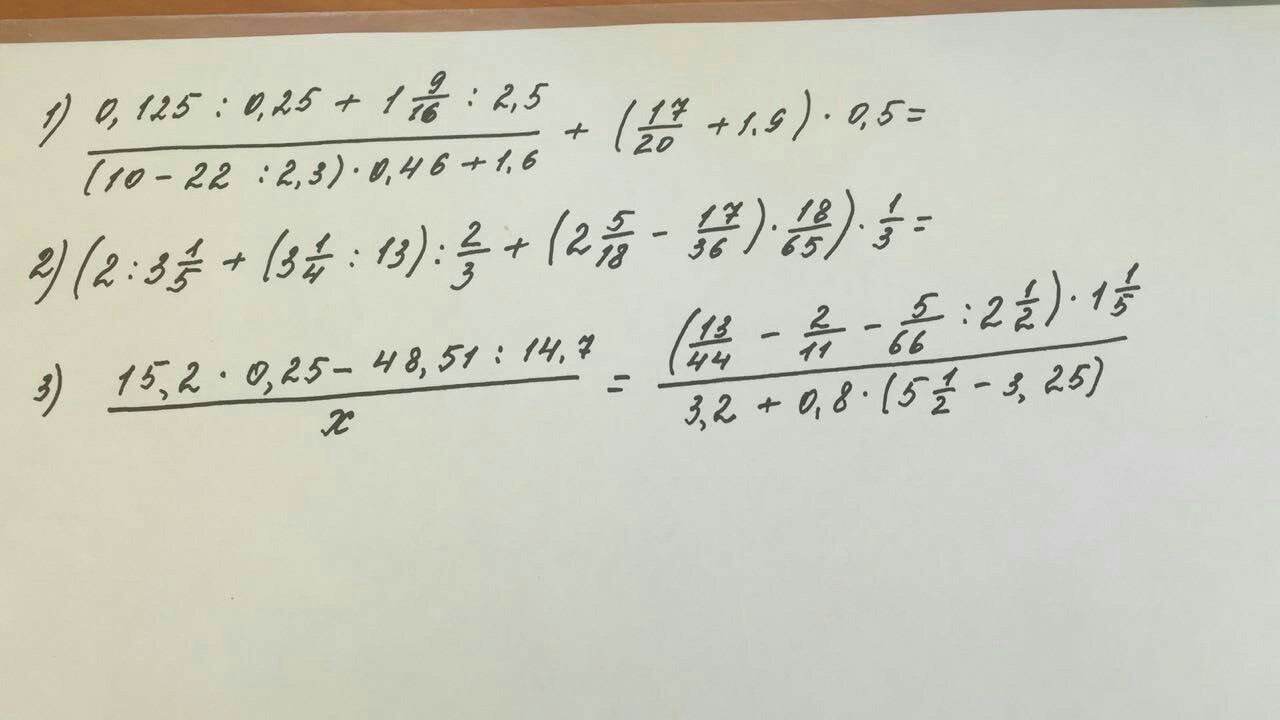 1) (0,125 : 0,25 + 1 9/16 : 2,5) / ((10 - 22 : 2,3) · 0,46 + 1,6) + (17/20 + 1.9) · 0,5 =
2) (2 : 3 1/5 + (3 1/4 : 13) : 2/3 + (2 5/18 - 17/36) · 18/65) · 1/3 =
3) (15,2 · 0,25 - 48,51 : 14.7) / x = ((13/44 - 2/11 - 5/66 : 2 1/2) · 1 1/5) / (3,2 + 0,8 · (5 1/2 - 3,25))